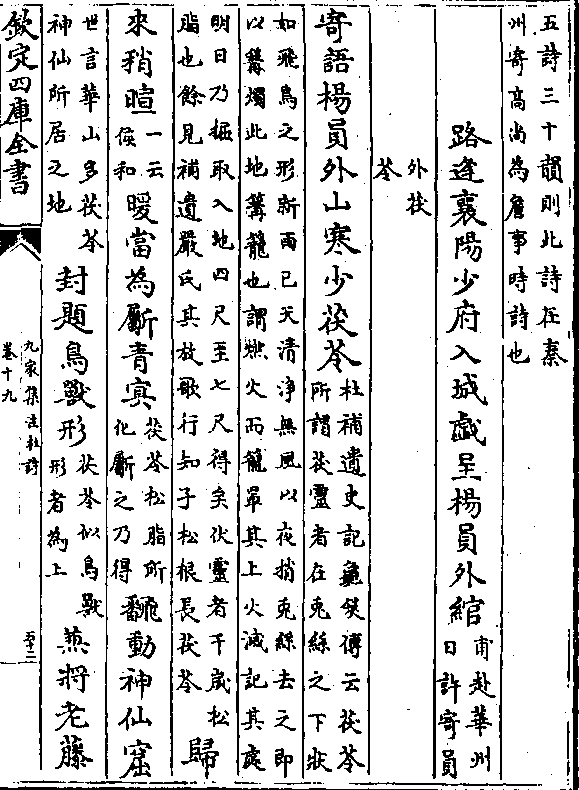 五詩三十韻則此詩在秦
州寄高尚為詹事時詩也
路逢襄陽少府入城戲呈楊員外綰甫赴華州
日許寄員
外茯
苓
寄語楊員外山寒少茯苓杜補遺史記龜筴傳云茯苓
所謂茯靈者在兔絲之下狀
如飛鳥之形新雨已天清淨無風以夜捎兔絲去之即
以篝燭此地篝籠也謂燃火而籠罩其上火滅記其處
明日乃掘取入地四尺至七尺得矣伏靈者千歲松
脂也餘見補遺嚴氏其放歌行知子松根長茯苓
歸
來稍暄一云
侯和
暖當為斸青冥茯苓松脂所
化斸之乃得
飜動神仙窟
世言華山多茯苓
神仙所居之地
封題鳥獸形茯苓似鳥獸
形者為上
兼將老藤
欽定四庫全書
九家集注杜詩
卷十九
五十二